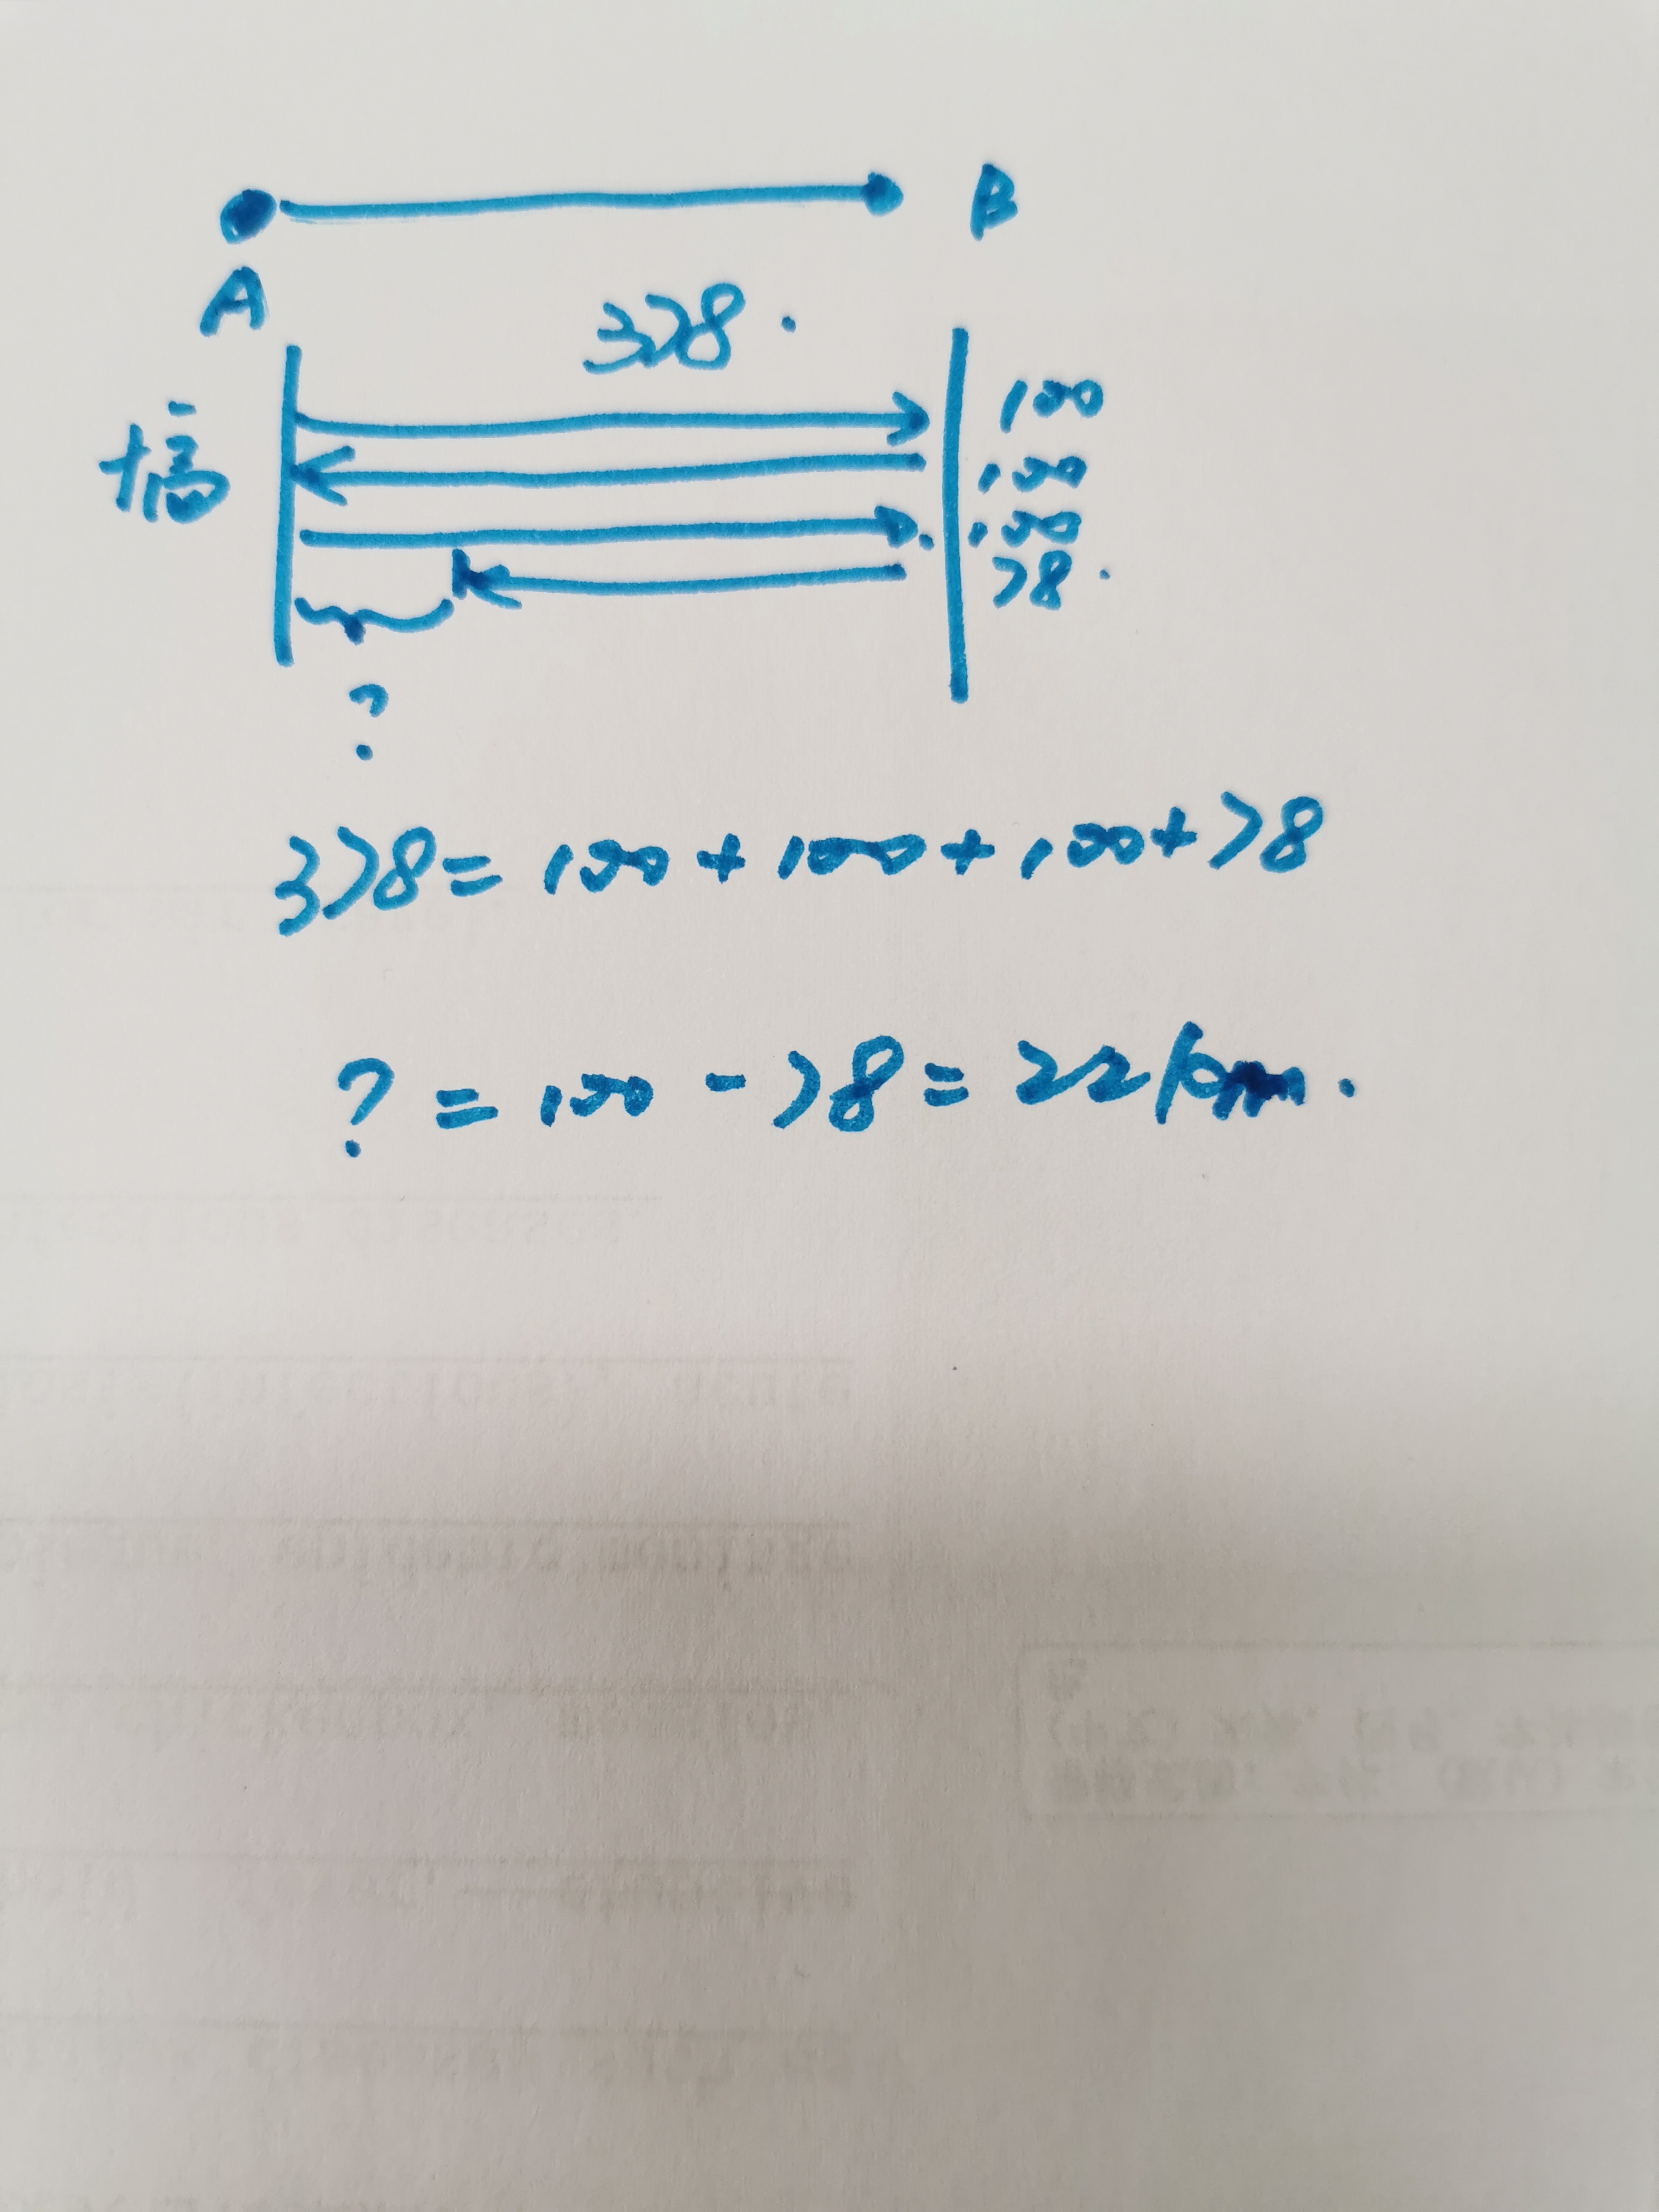 B
A
378.
100
100
100
78.
?
378 = 100 + 100 + 100 + 78
? = 100 - 78 = 22 km.